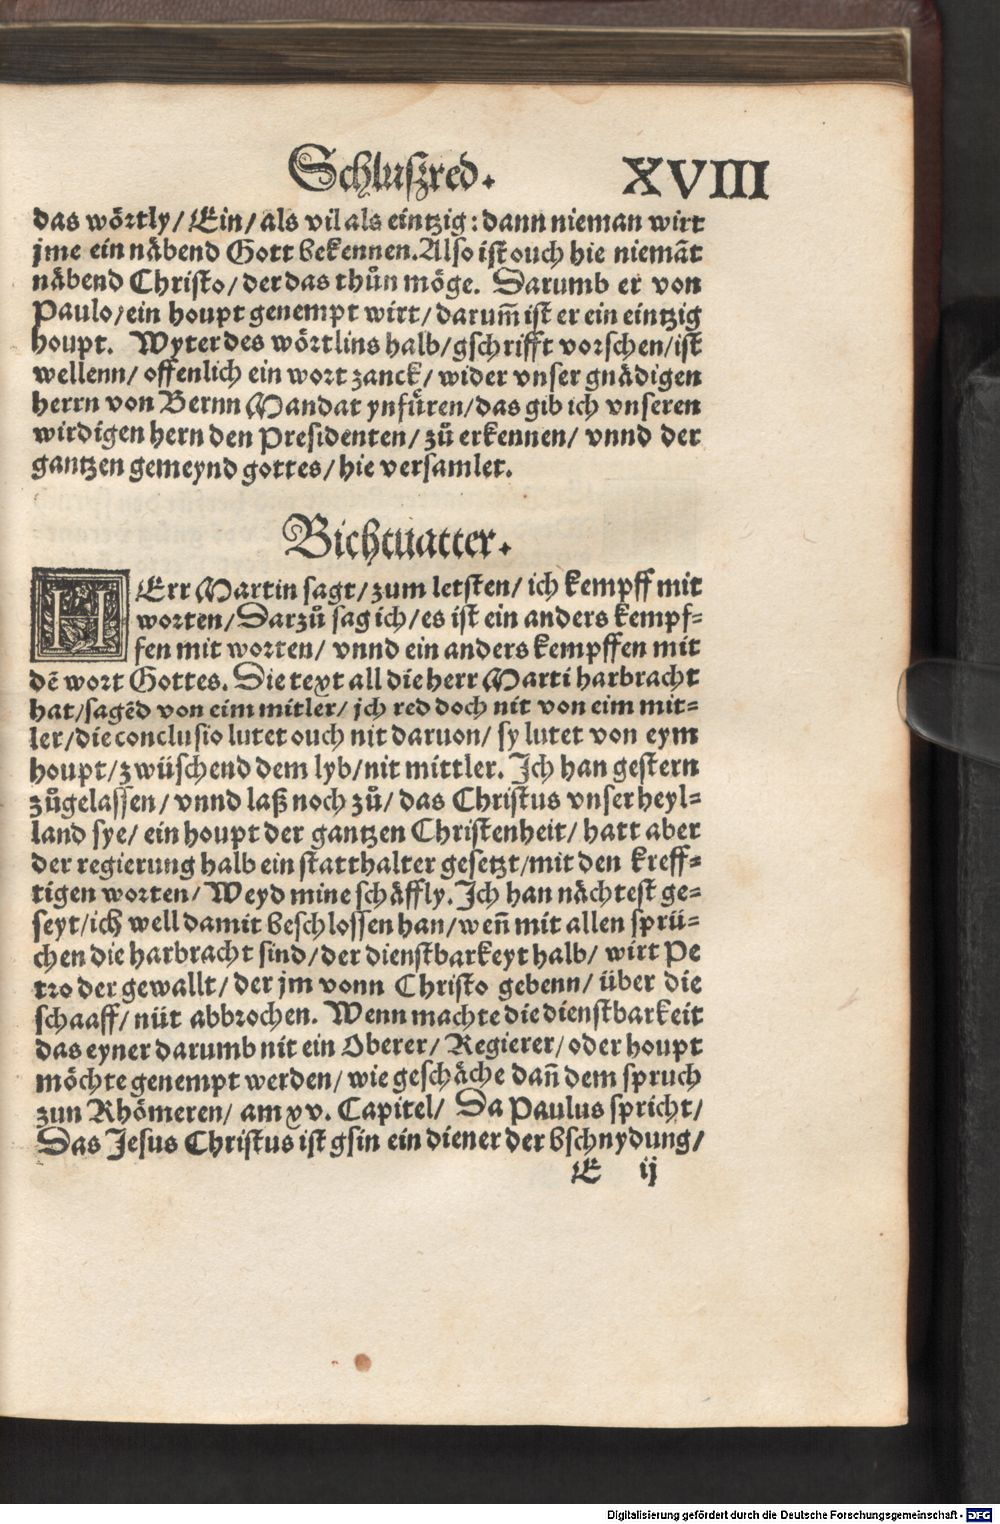 Schluszred. XVIII
das wörtly/ Ein/ als vil als eintzig: dann nieman wirt
jme ein näbend Gott bekennen. Also ist ouch hie niemāt
näbend Christo/ der das thůn möge. Darumb er von
Paulo/ ein houpt genempt wirt/ darum̄ ist er ein eintzig
houpt. Wyter des wörtlins halb/ gschrifft vorschen/ ist
wellenn/ offenlich ein wort zanck/ wider vnser gnädigen
herrn von Bernn Mandat ynfüren/ das gib ich vnseren
wirdigen hern den Presidenten/ zů erkennen/ vnnd der
gantzen gemeynd gottes/ hie versamlet.
Bichtuatter.
HErr Martin sagt/ zum letsten/ ich kempff mit
worten/ Darzů sag ich/ es ist ein anders kempf-
fen mit worten/ vnnd ein anders kempffen mit
dē wort Gottes. Die text all die herr Marti harbracht
hat/ sagēd von eim mitler/ jch red doch nit von eim mit-
ler/ die conclusio lutet ouch nit daruon/ sy lutet von eym
houpt/ zwüschend dem lyb/ nit mittler. Ich han gestern
zůgelassen/ vnnd laß noch zů/ das Christus vnser heyl-
land sye/ ein houpt der gantzen Christenheit/ hatt aber
der regierung halb ein statthalter gesetzt/ mit den kreff-
tigen worten/ Weyd mine schäffly. Ich han nächtest ge-
seyt/ ich well damit beschlossen han/ wen̄ mit allen sprü-
chen die harbracht sind/ der dienstbarkeyt halb/ wirt Pe
tro der gewallt/ der jm vonn Christo gebenn/ über die
schaaff/ nüt abbrochen. Wenn machte die dienstbarkeit
das eyner darumb nit ein Oberer/ Regierer/ oder houpt
möchte genempt werden/ wie geschäche dan̄ dem spruch
zun Rhömeren/ am xv. Capitel/ Da Paulus spricht/
Das Jesus Christus ist gsin ein diener der bschnydung/
E ij
Digitalisierung gefördert durch die Deutsche Forschungsgemeinschaft - DFG